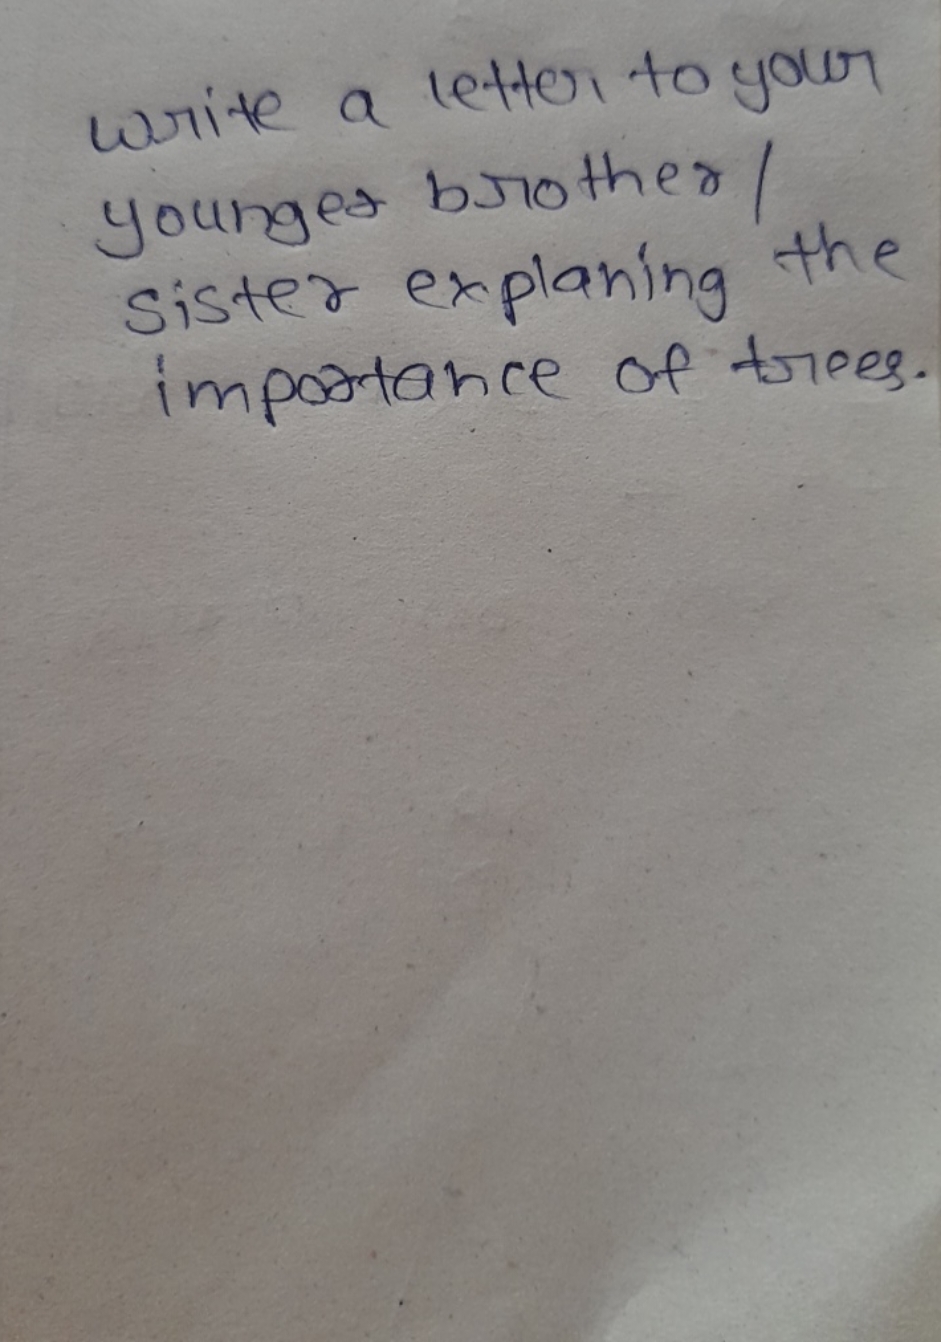 write a letter to your
younger brother /
sister explaning the
importance of trees.